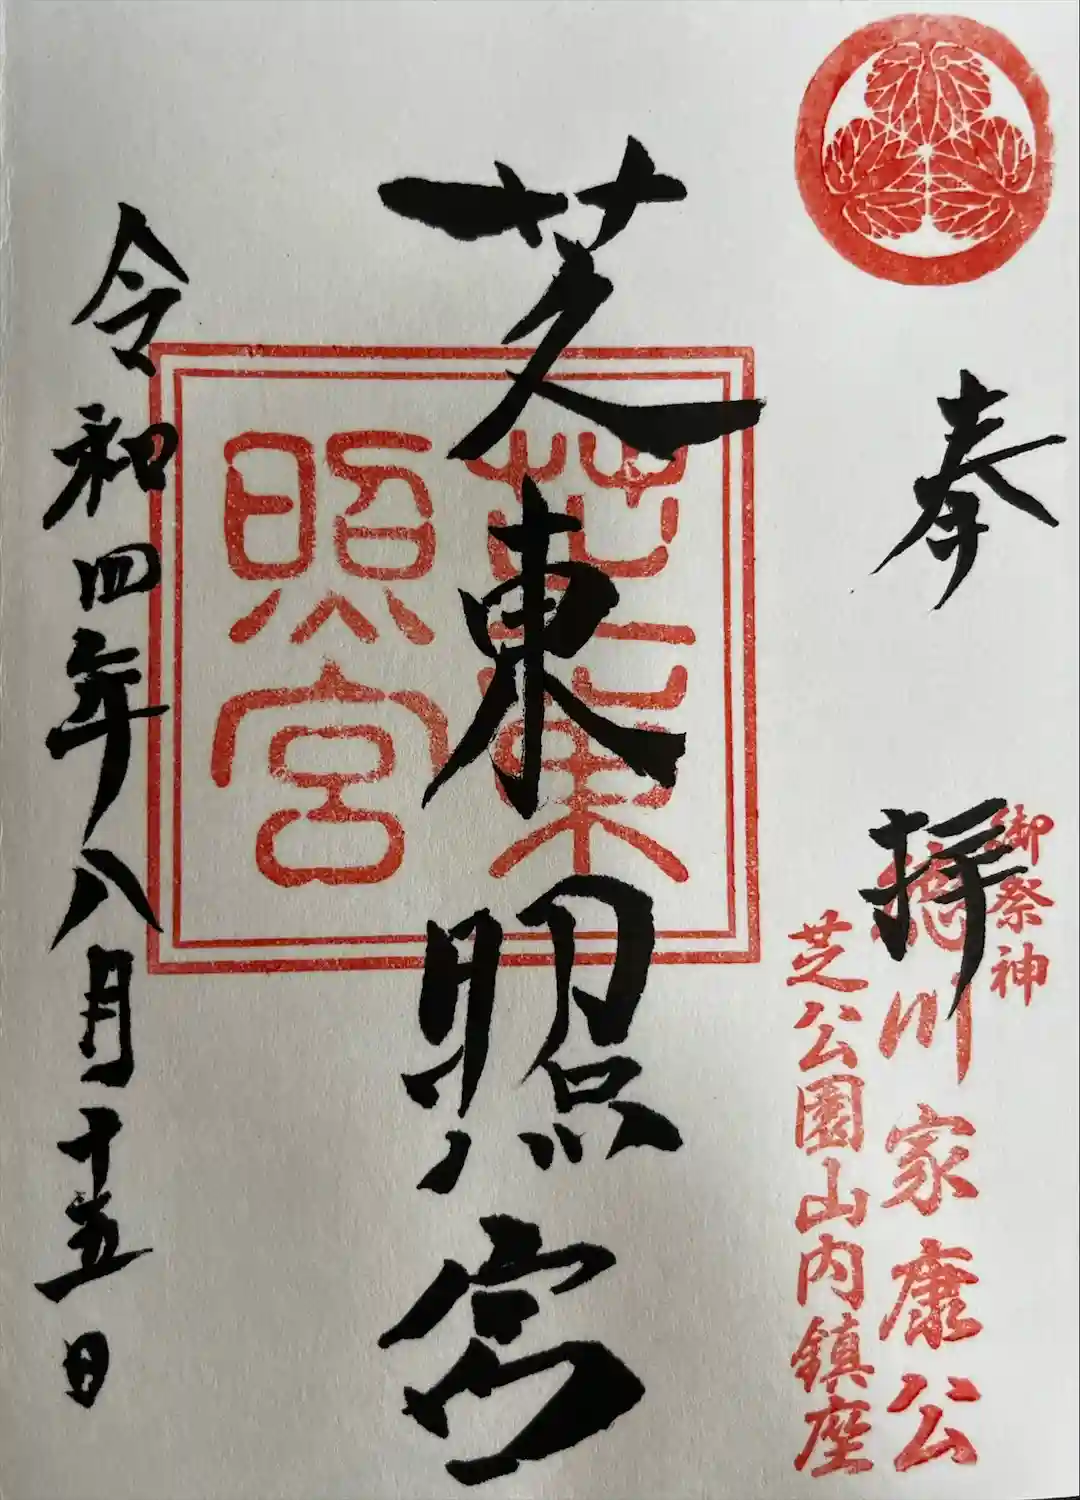 奉拝
御祭神
徳川家康公
芝公園山内鎮座
芝東照宮
芝東照宮
令和四年八月十五日